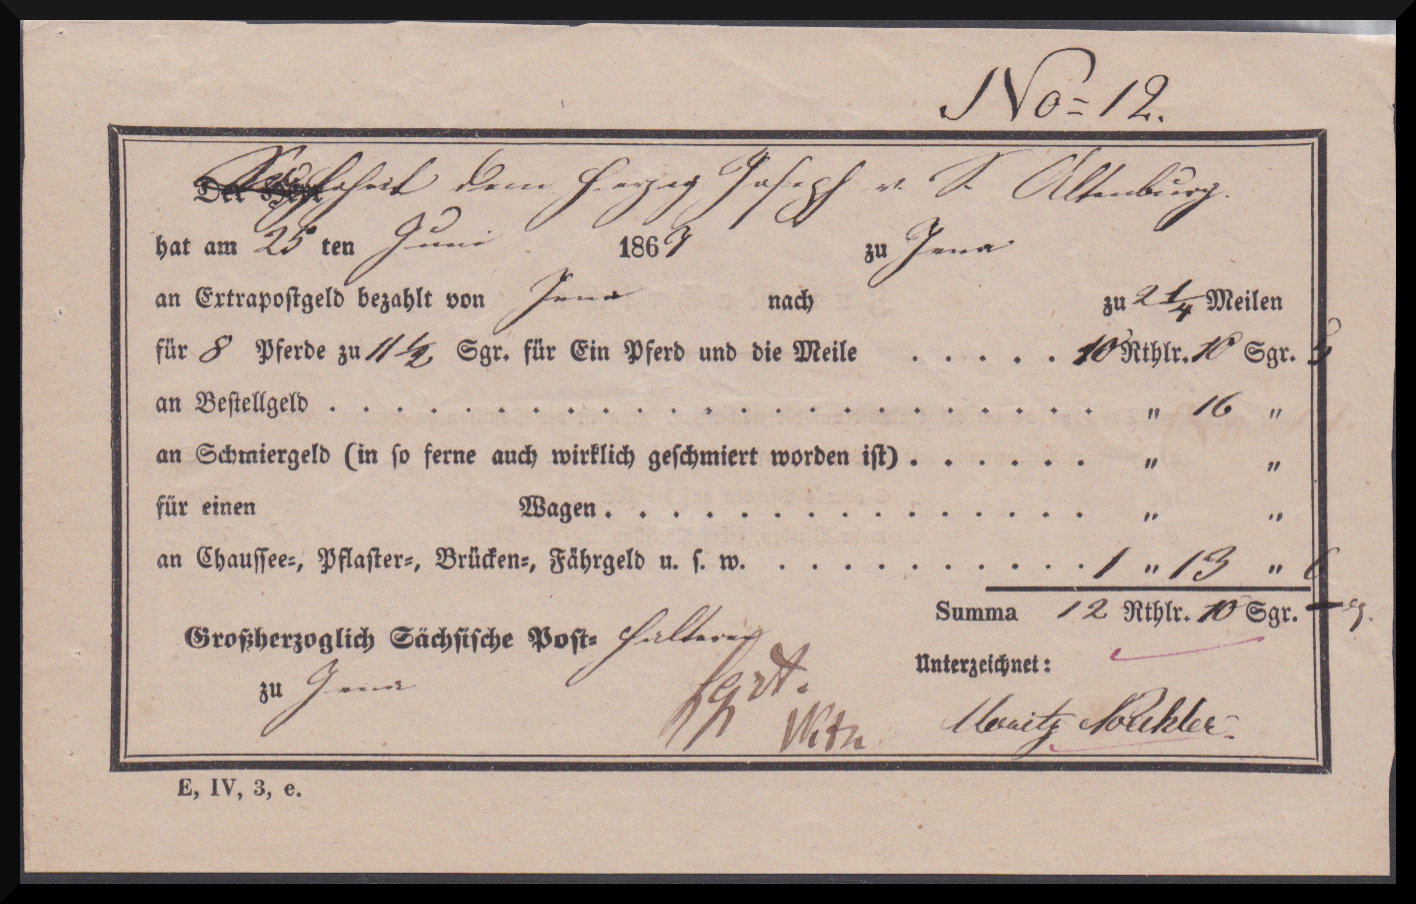 No = 12.
Der Hoheit dem Herzog Joseph v. S. Altenburg.
hat am 25 ten Juni 1867 zu Jena
an Extrapostgeld bezahlt von Jena nach zu 2 1/4 Meilen
für 8 Pferde zu 11 1/2 Sgr. für Ein Pferd und die Meile . . . . . 10 Rthlr. 10 Sgr.
an Bestellgeld . . . . . . . . . . . . . . . . . . . . . . . „ 16 „
an Schmiergeld (in so ferne auch wirklich geschmiert worden ist) . . . . . . „ „
für einen Wagen . . . . . . . . . . . . . . . „ „
an Chaussee-, Pflaster-, Brücken-, Fährgeld u. s. w. . . . . . . . . . . . 1 „ 13 „ 6
Summa 12 Rthlr. 10 Sgr. —
Großherzoglich Sächsische Post-halterei
Unterzeichnet:
zu Jena
Moritz
E, IV, 3, e.